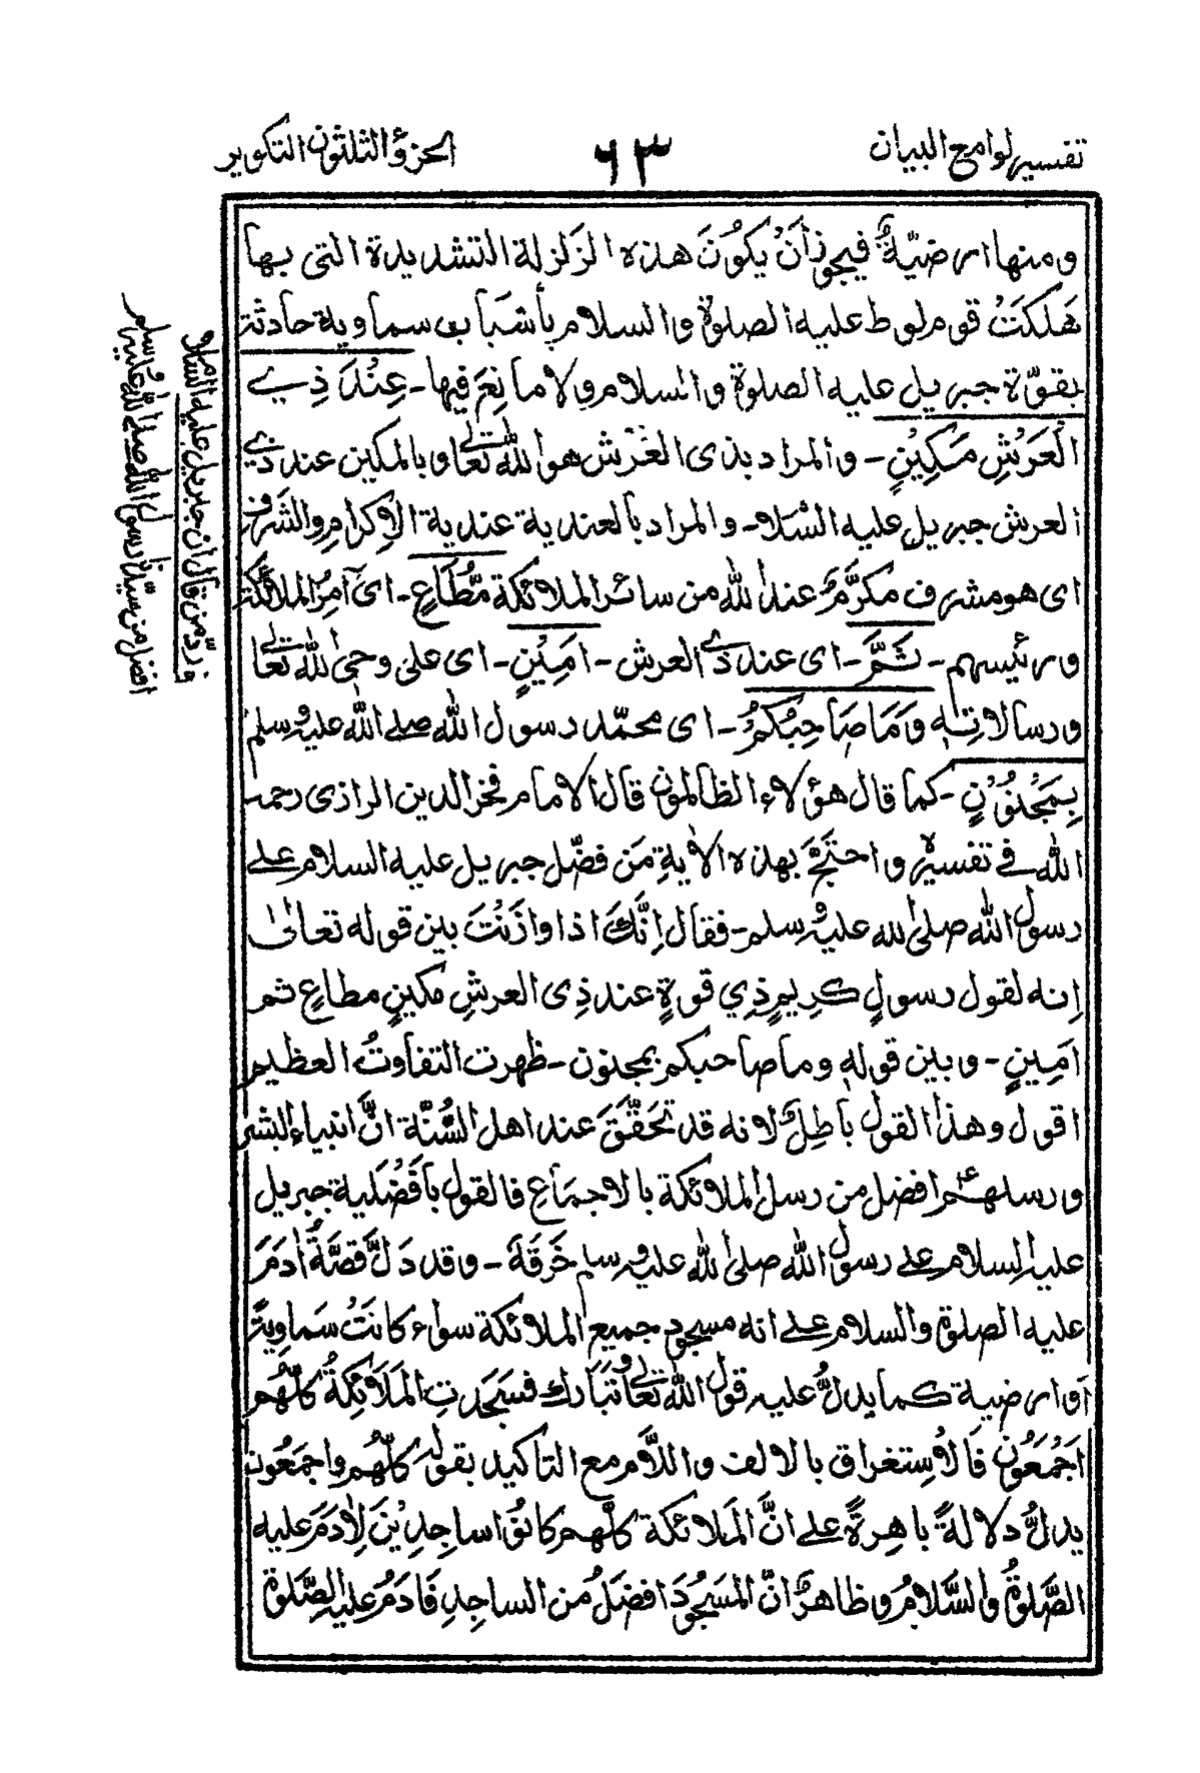 تفسير لوامع البيان
٦٣
الجزؤ الثلثون التكوير
ومنها ارضيّةٌ فيجوز أَنْ يكُوْنَ هذه الزلزلة الشديدة التى بها
هَلكَتْ قوم لوط عليه الصلوة والسلام بأسْبَاب سماوية حادثة
بقوّة جبريل عليه الصلوة والسلام ولا مانِعَ فيها - عِنْدَ ذِي
الْعَرْشِ مَكِيْنٍ - والمراد بذى العَرْش هو الله تعالى وبالمكين عند ذي
العرش جبريل عليه السّلام - والمراد بالعندية عندية الاِكرامِ والشَرف
اى هو مشرف مكرَّمٌ عند الله من سائر الملائكة مُّطَاعٍ - اىْ آمِرُ الملائكة
ورئيسهم - ثَمَّ - اى عند ذي العرش - اَمِيْنٍ - اى على وحى الله تعالى
ورسالاتِهٖ وَمَا صَاحِبُكُمْ - اى محمّد رسول الله صلى الله عليه وسلم
بِمَجْنُوْنٍ - كما قال هؤلاء الظالمون قال الامام فخر الدين الرازى رحمه
الله فى تفسيره واحتَجَّ بهذه الآيةِ مَن فضّل جبريل عليه السلام على
رسول الله صلى الله عليه وسلم - فقال اِنَّكَ اذا وازَنْتَ بين قوله تعالىٰ
اِنه لقول رسولٍ كريمٍ ذِي قوةٍ عند ذِى العرشِ مكينٍ مطاعٍ ثم
امِينٍ - وبين قولهٖ وما صاحبكم بمجنون - ظهرت التفاوتُ العظيم
اقول وهذا القول باطِلٌ لانه قد تحَقَّقَ عند اهل السُّنّة انَّ انبياء البشر
ورسلهم افضل من رسل الملائكة بالاجمَاعِ فالقول بأفْضَلية جبريل
عليه السلام على رسول الله صلى الله عليه وسلم خَرَقَةٌ - وقد دَلَّ قصَّةُ اٰدَمَ
عليه الصلوة والسلام على انه مسجود جميع الملائكة سواء كانَتْ سَماوِيةً
اَو ارضية كما يدلُّ عليه قول الله تعالى وتَبَارك فسَجَدتِ المَلَائِكَةُ كلّهُم
اَجْمَعُوْن فَالاُستغراق بالالف واللَّام مع التاكيد بقوله كلّهُم واجمَعُون
يدلُّ دلالةً باهِرةً على انَّ الملائكة كلّهم كانُوْا ساجِدِيْنَ لِاٰدَمَ عليه
الصَّلوةُ والسَّلامُ وظاهرٌ انَّ المَسجُودَ افضَلُ من الساجِدِ فَاٰدَمُ عليه الصّلوة
فـ ردّ من قال ان جبريل عليه السلام
افضل من سيّدنا رسول الله صلى الله عليه وسلم